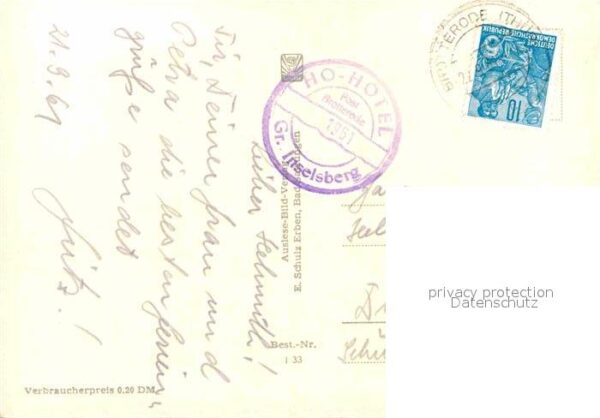 21. 9. 61
Lieber Helmuth!
Dir, Deiner Frau und
Petra die besten Ferien-
grüße sendet
Fritz!
HO-HOTEL
Post
Brotterode
1951
Gr. Inselsberg
Auslese-Bild-Verlag
E. Schulz Erben, Bad
Best.-Nr.
i 33
Verbraucherpreis 0,20 DM
BROTTERODE (THÜR
DEUTSCHE
DEMOKRATISCHE REPUBLIK
10
privacy protection
Datenschutz